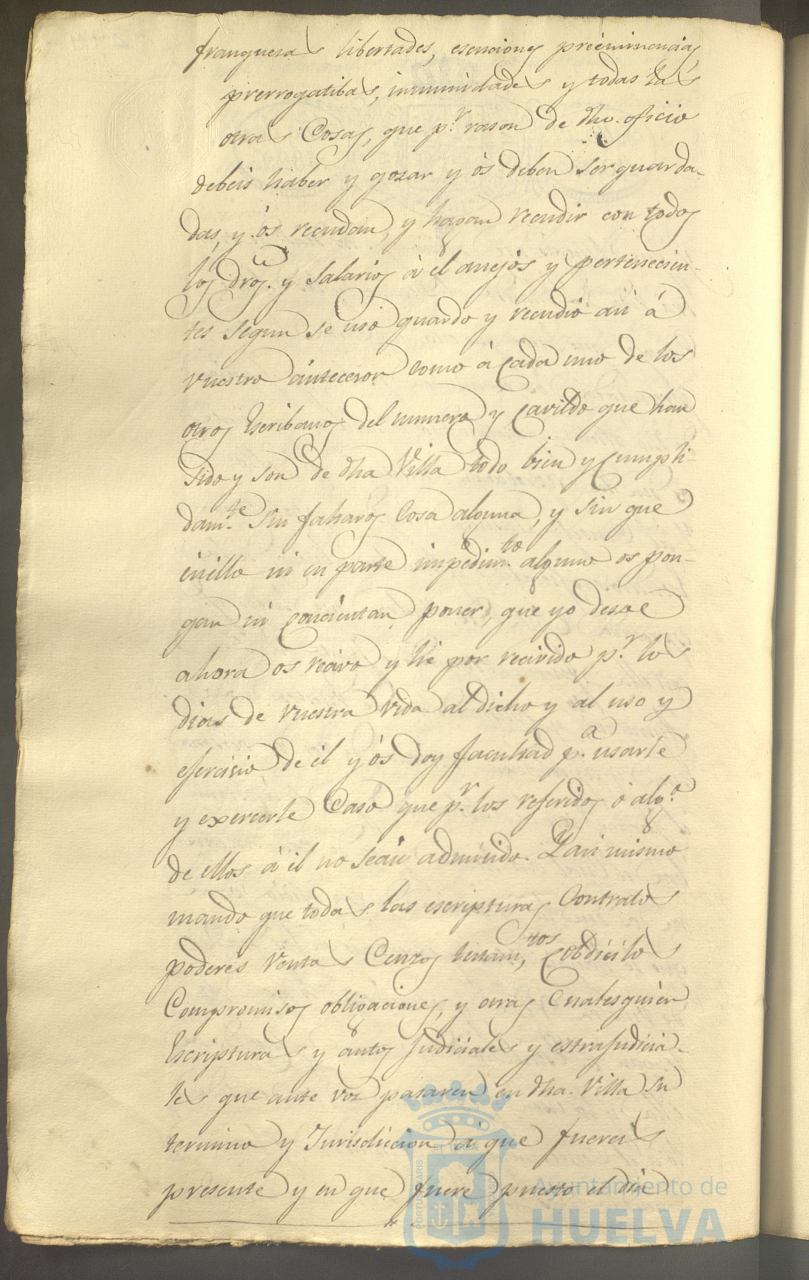 franquezas libertades, esenciones preéminencias
prerrogatibas, inmunidades y todas las
otras Cosas, que pr. rason de dho. oficio
debeis haber y gozar y ós deben ser guarda-
das, y ós recudan, y hagan recudir con todos
los dros. y Salarios á él anejos y pertenecien-
tes segun se usó guardo y recudio asi á
vuestro ántecesor como á Cada uno de los
otros Escribanos del numero y Cavildo que han
sido y son de dha Villa todo bien y Cumpli-
damte. sin faltaros Cosa alguna, y sin que
énello ni en parte impedimto. alguno os pon-
gan ni Concientan poner, que yo desde
ahora os recivo y hé por recivido pr. los
dias de vuestra vida al dicho y al uso y
esercisio de él y ós doy facultad pa. usarle
y exercerle Caso que pr. los referidos ó algo.
de ellos á él no seais admitido. Y asi mismo
mando que todas las escripturas Contratos
poderes ventas Cenzos testamtos., Cobdicilos
Compromisos obligaciones, y otras Cualesquier
Escripturas y áutos Judiciales y estrajudicia-
les que ante vos pasaren en dha. Villa su
termino y Jurisdiccion á que fuereis
presente y en que fuere puesto el dia
Ayuntamiento de
HUELVA